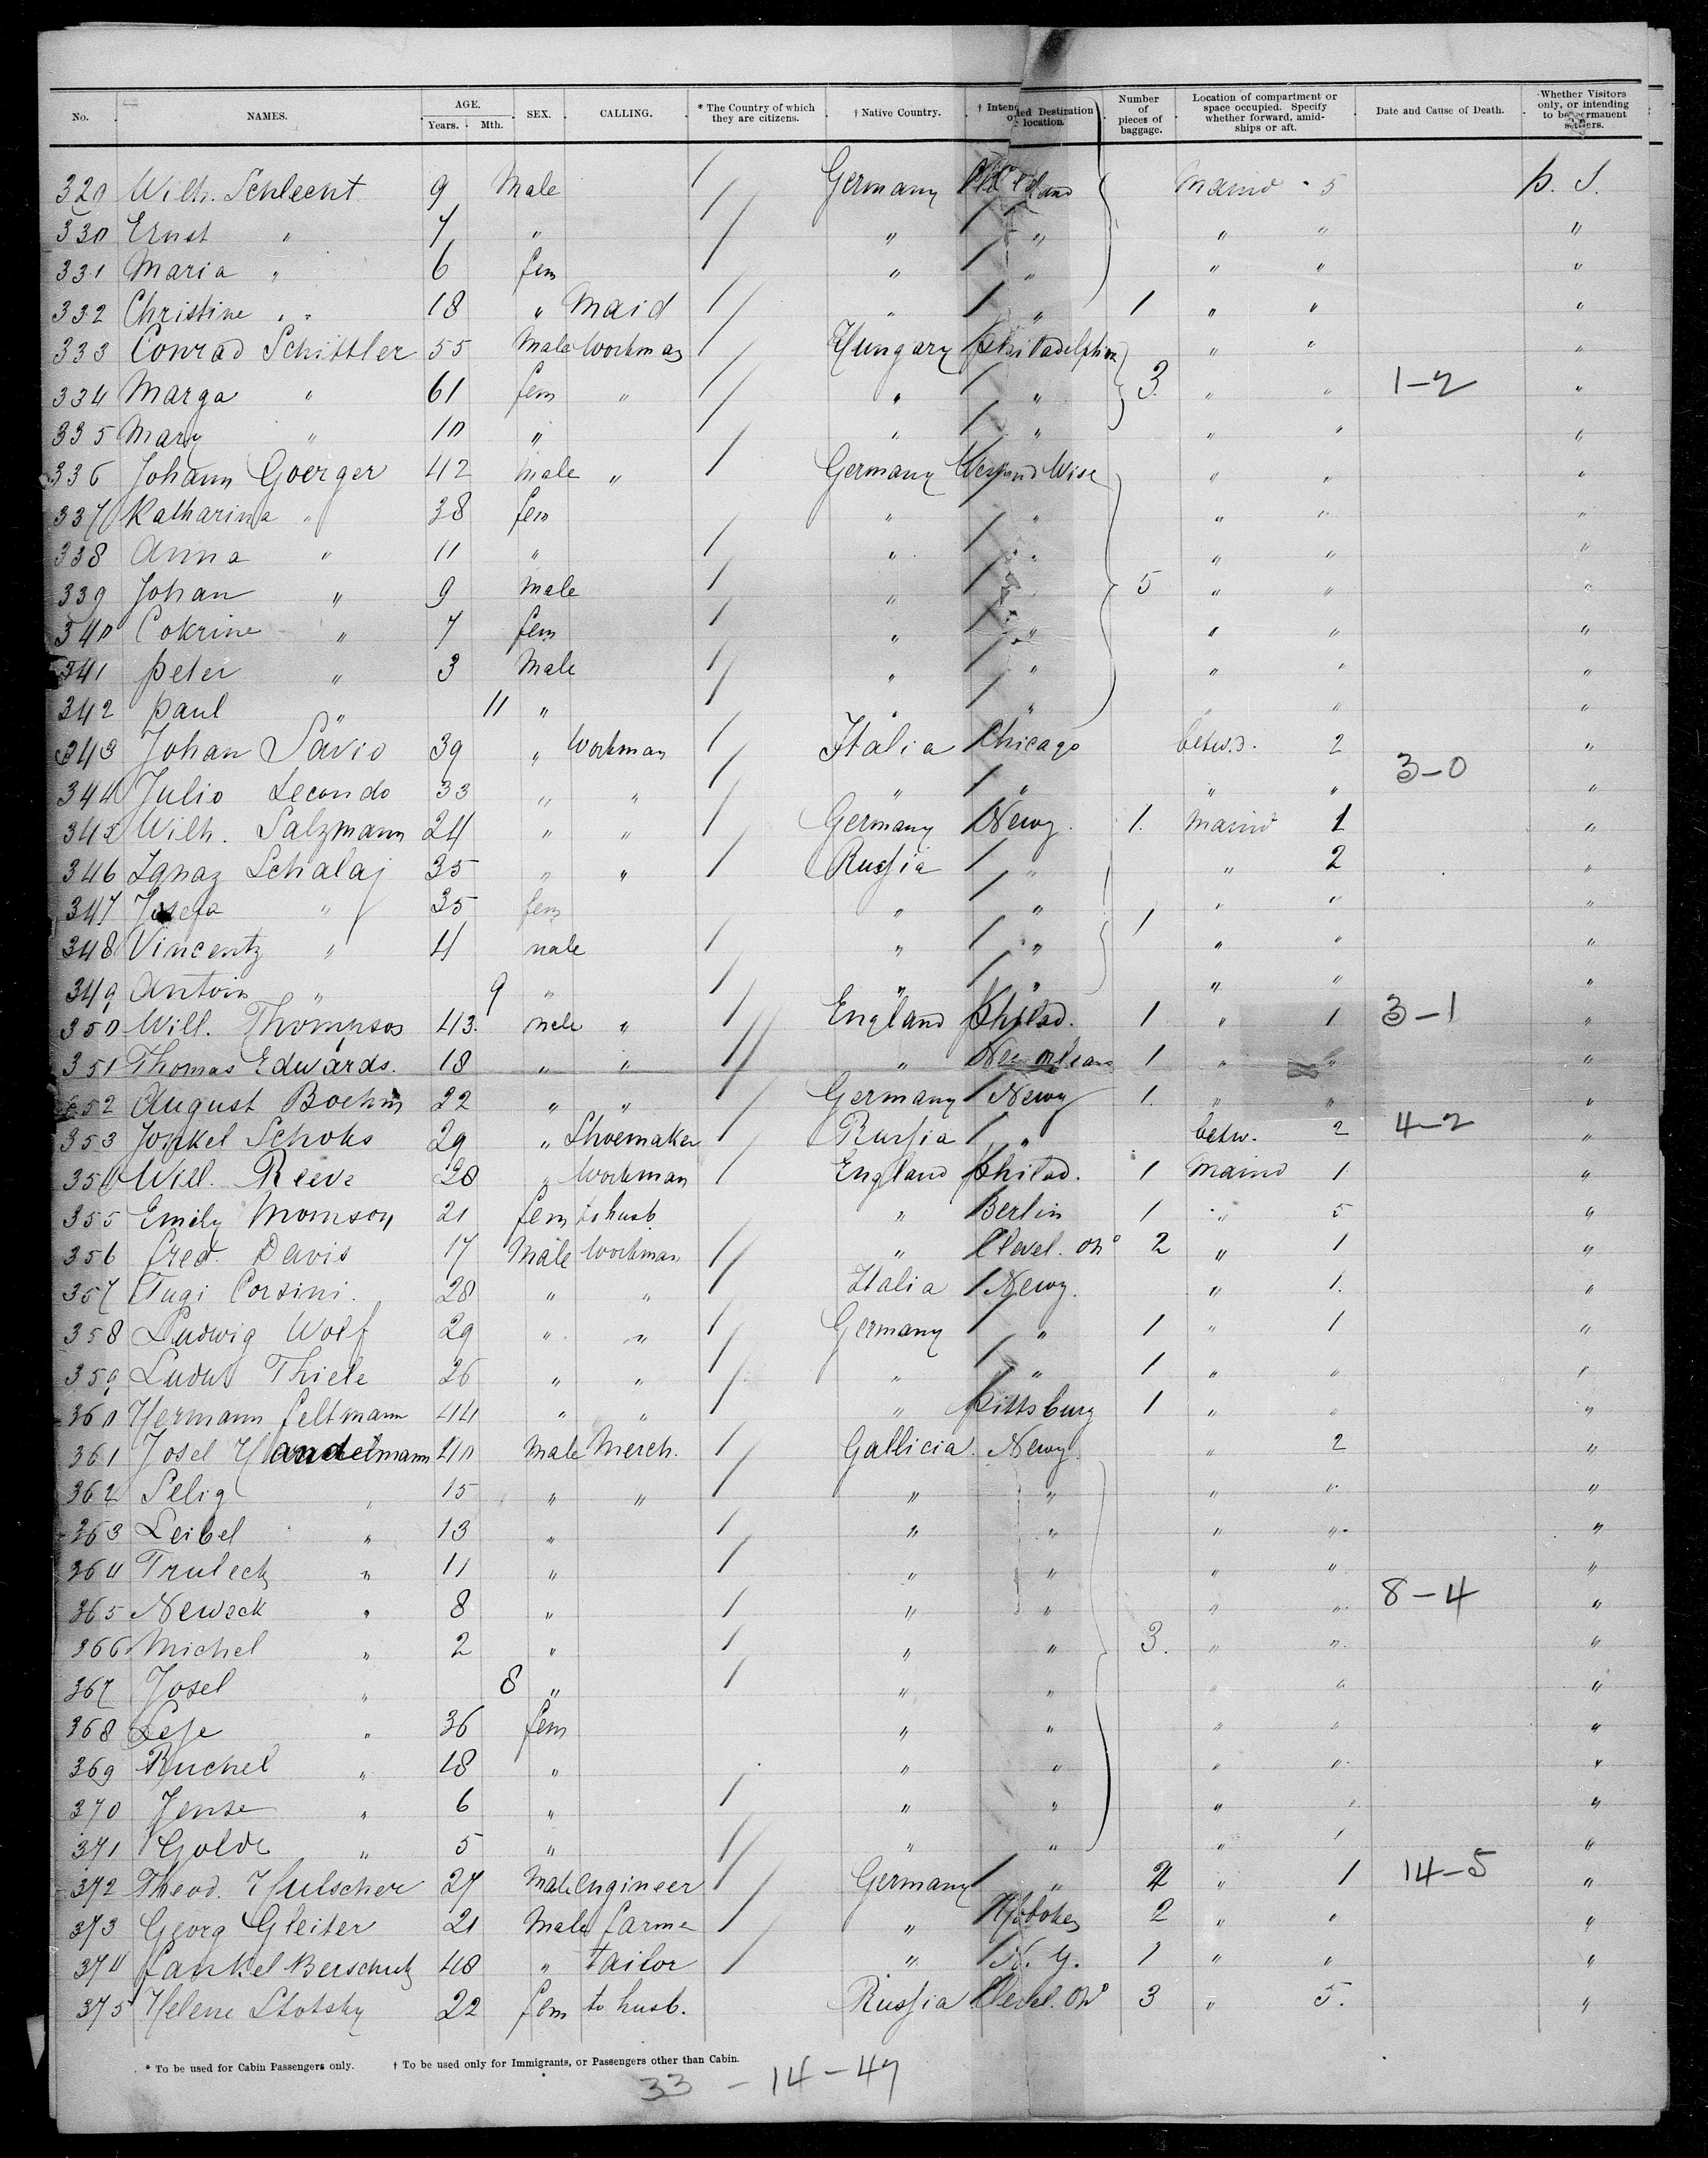 No. NAMES. AGE. Years. Mth. SEX. CALLING. * The Country of which they are citizens. † Native Country. † Intended Destination or location. Number of pieces of baggage. Location of compartment or space occupied. Specify whether forward, amidships or aft. Date and Cause of Death. Whether Visitors only, or intending to be permanent settlers.
329 Wilh. Schlecht 9 Male / Germany Maind " 5 p. S.
330 Ernst " 7 " / " / " " " "
331 Maria " 6 fem / " / " " " "
332 Christine " " 18 " Maid / " / " 1 " " "
333 Conrad Schittler 55 Male Workman / Hungary Philadelphia " " "
334 Marga " 61 fem " / " / " 3. " " 1-2 "
335 Mary " 10 " / " / " " " "
336 Johann Goerger 42 male " / Germany Wise " " "
337 Katharina " 38 fem " / " " " "
338 Anna " 11 " / " / " " " "
339 Johan " 9 male / " / " 5 " " "
340 Cokrine " 7 fem / " / " " " "
341 Peter " 3 Male / " / " " " "
342 Paul " 11 " / " / " " " "
343 Johan Savio 39 " Workman / Italia Chicago betw.d. 2 "
344 Julio Secondo 33 " " / " / " " " 3-0 "
345 Wilh. Salzmann 24 " " / Germany Newy. 1. Maind 1 "
346 Ignaz Schalaj 35 " " / Russia / " " 2 "
347 Josefa " 35 fem " / " 1 " " "
348 Vincentz " 4 male / " / " " " "
349 Antoin " 9 " / " / " " " "
350 Will. Thompson 43. male " / England Philad. 1 " 1 3-1 "
351 Thomas Edwards. 18 " " / " New Orleans 1 " " "
352 August Boehm 22 " " / Germany / Newy 1. " " "
353 Jonkel Schoks 29 " Shoemaker / Russia / " betw. 2 4-2 "
354 Will. Reeve 28 " Workman / England Philad. 1 Maind 1 "
355 Emily Momson 21 fem to husb. " Berlin 1 " 5 "
356 Fred. Davis 17 Male Workman / " Clevel. Oho 2 " 1 "
357 Tugi Corsini. 28 " " / Italia / Newy. " 1. "
358 Ludwig Wolf 29 " " / Germany / " 1 " 1 "
359 Thiele 26 " " / " / " 1 " " "
360 Hermann Feltmann 44 " " / " Pittsburg 1 " " "
361 Josel Handelmann 40 Male Merch. / Gallicia. Newy. " 2 "
362 Selig " 15 " " / " " " " "
363 Leibel " 13 " / " " " " "
364 " 11 " / " " " " "
365 Neweck " 8 " / " " " " 8-4 "
366 Michel " 2 " / " " 3. " " "
367 Josel " 8 " / " " " " "
368 Lese " 36 fem " " " " "
369 Ruchel " 18 " " " " " "
370 Jense " 6 " / " " " " "
371 Golde " 5 " / " " " " "
372 Theod. Hulscher 27 Male engineer / Germany / " " 1 14-5 "
373 Georg Gleiter 21 Male farme / " Hoboken 2 " " "
374 Fankel Berschutz 48 " tailor / " N. Y. 1 " " "
375 Helene Slotsky 22 fem to husb. Russia Clevel. Oho 3 " 5. "
* To be used for Cabin Passengers only. † To be used only for Immigrants, or Passengers other than Cabin.
33 - 14 - 47